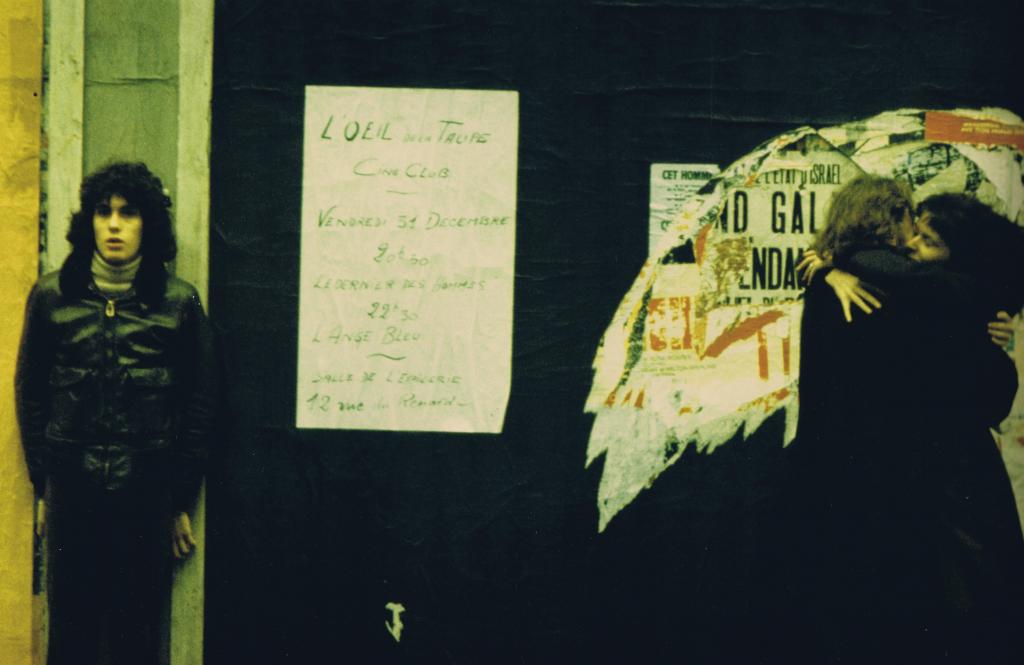 L'OEIL DE LA TAUPE
CINE CLUB
VENDREDI 31 DECEMBRE
20h30
LE DERNIER DES HOMMES
22h30
L'ANGE BLEU
SALLE DE L'EPICERIE
12 rue du Renard
CET HOMM
L'ETAT D'ISRAEL
ND GAL
ENDAN